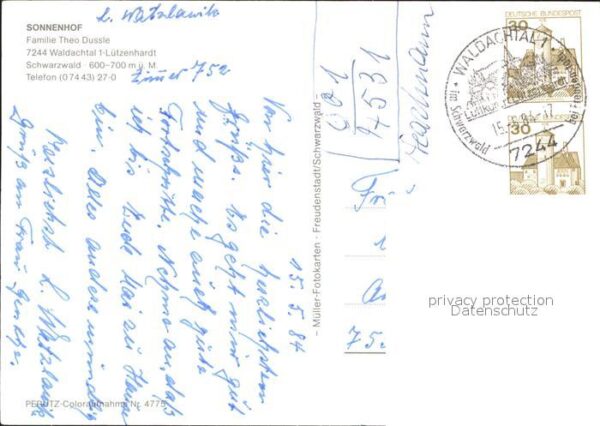 L. Watzlawik
SONNENHOF
Familie Theo Dussle
7244 Waldachtal 1-Lützenhardt
Schwarzwald · 600-700 m ü. M.
Telefon (0 74 43) 27-0
Zimmer 752
15.5.84
Von hier die herzlichsten
Grüße. Es geht mir gut
und mache auch gute
Fortschritte. Nehme an, daß
ich bis Ende Mai zu Hause
bin. Alles andere mündlich.
Herzlichst L. Watzlawik
Gruß an Frau
PERUTZ-Coloraufnahme Nr. 4775
– Müller-Fotokarten · Freudenstadt/Schwarzwald –
001
14531
DEUTSCHE BUNDESPOST
30
30
WALDACHTAL 1
im Schwarzwald
7244
privacy protection
Datenschutz
75